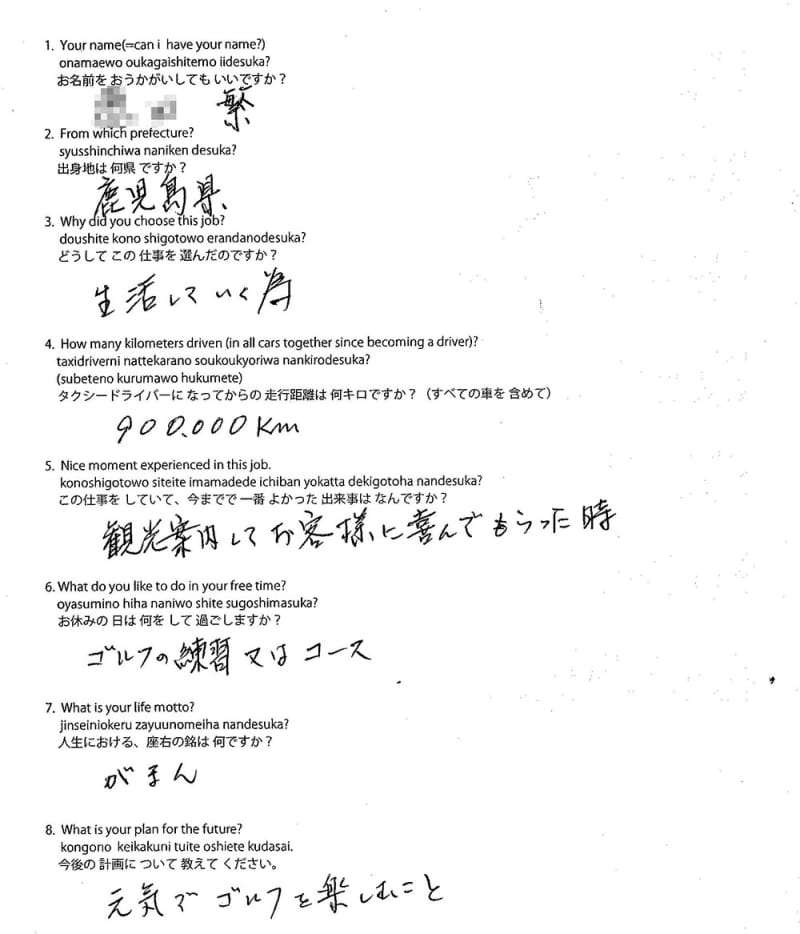 1. Your name(=can i have your name?)
onamaewo oukagaishitemo iidesuka?
お名前を おうかがいしても いいですか？
繁
2. From which prefecture?
syusshinchiwa naniken desuka?
出身地は 何県 ですか？
鹿児島県
3. Why did you choose this job?
doushite kono shigotowo erandanodesuka?
どうして この 仕事を 選んだのですか？
生活していく為
4. How many kilometers driven (in all cars together since becoming a driver)?
taxidriverni nattekarano soukoukyoriwa nankirodesuka?
(subeteno kurumawo hukumete)
タクシードライバーに なってからの 走行距離は 何キロですか？（すべての車を 含めて）
900.000Km
5. Nice moment experienced in this job.
konoshigotowo siteite imamadede ichiban yokatta dekigotoha nandesuka?
この仕事を していて、今までで 一番 よかった 出来事は なんですか？
観光案内してお客様に喜んでもらった時
6. What do you like to do in your free time?
oyasumino hiha naniwo shite sugoshimasuka?
お休みの 日は 何を して 過ごしますか？
ゴルフの練習又はコース
7. What is your life motto?
jinseiniokeru zayuunomeiha nandesuka?
人生における、座右の銘は 何ですか？
がまん
8. What is your plan for the future?
kongono keikakuni tuite oshiete kudasai.
今後の 計画に ついて 教えて ください。
元気でゴルフを楽しむこと